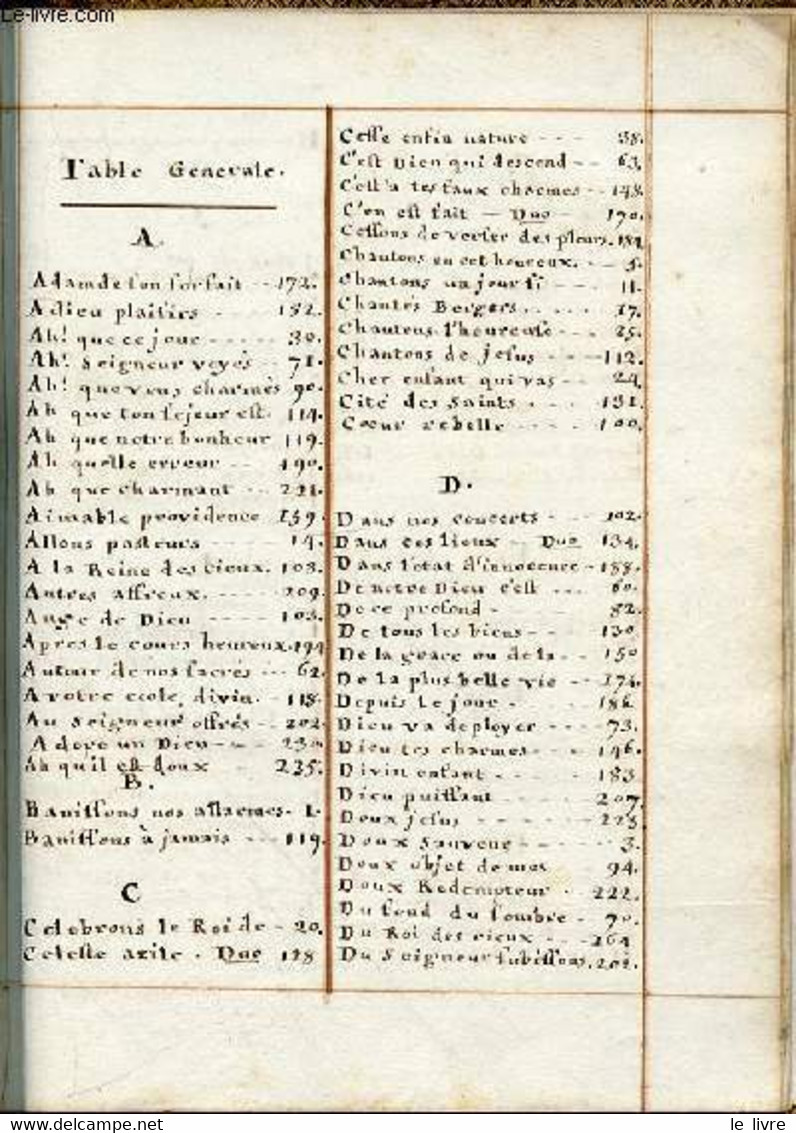 Le-livre.com
Table Generale.
A.
Adam de son forfait - - 172.
Adieu plaisirs - - - 152.
Ah! que ce jour - - - - 30.
Ah! Seigneur voyés - - 71.
Ah! que vous charmés 90.
Ah que ton sejour est. 114.
Ah que notre bonheur 119.
Ah quelle erreur - - 190.
Ah que charmant - - - 221.
Aimable providence 159.
Allons pasteurs - - - 14.
A la Reine des cieux. 103.
Antres affreux. - - - - 209.
Ange de Dieu - - - - 105.
Apres le cours heureux. 194
Autour de nos sacrés - - - 62.
A votre ecole, divin. - 118.
Au Seigneur offrés - - 202.
Adore un Dieu - - - 230.
Ah qu'il est doux - 235.
B.
Banissons nos allarmes. 1.
Banissons à jamais - - - 119.
C
Celebrons le Roi de - 20.
Celeste azile . Duo 128
Cesse enfin nature - - - 38.
C'est Dieu qui descend - - 63.
C'est a tes faux charmes - - 148.
C'en est fait — Duo - 170.
Cessons de verser des pleurs. 184
Chantons en cet heureux. - - 5.
Chantons un jour si - - - 11.
Chantés Bergers . . . . . 17.
Chantons l'heureuse - - - 25.
Chantons de jesus - - - - 112.
Cher enfant qui vas - - 24.
Cité des Saints . - - - 131.
Cœur rebelle - - - - 100.
D.
Dans nos concerts - - - 102.
Dans ces lieux — Duo 134.
Dans l'etat d'innocence - 188.
De notre Dieu c'est - - - 60.
De ce profond - - - 82.
De tous les biens - - - 130
De la grace ou de la - - 150
De la plus belle vie - - 174.
Depuis le jour - - - 186
Dieu va deployer - - - 73.
Dieu tes charmes - - - 146.
Divin enfant - - - - 183
Dieu puissant - - - - - 207.
Doux jesus - - - - - - 223.
Doux Sauveur - - - - - 3.
Doux objet de mes 94.
Doux Redemteur - 222.
Du fond du sombre - 70.
Du Roi des cieux - - - 264
Du Seigneur subissons. 202.
le livre